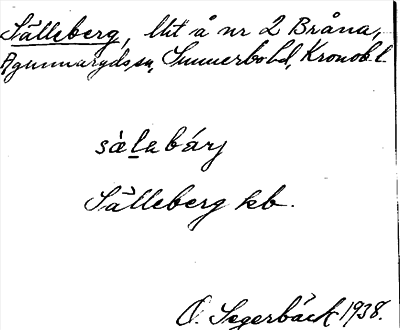 Sälleberg, lht å nr 2 Bråna,
Agunnaryds sn, Sunnerbo hd, Kronob. l.
sàlabárj
Sälleberg kb.
O. Segerbäck 1938.